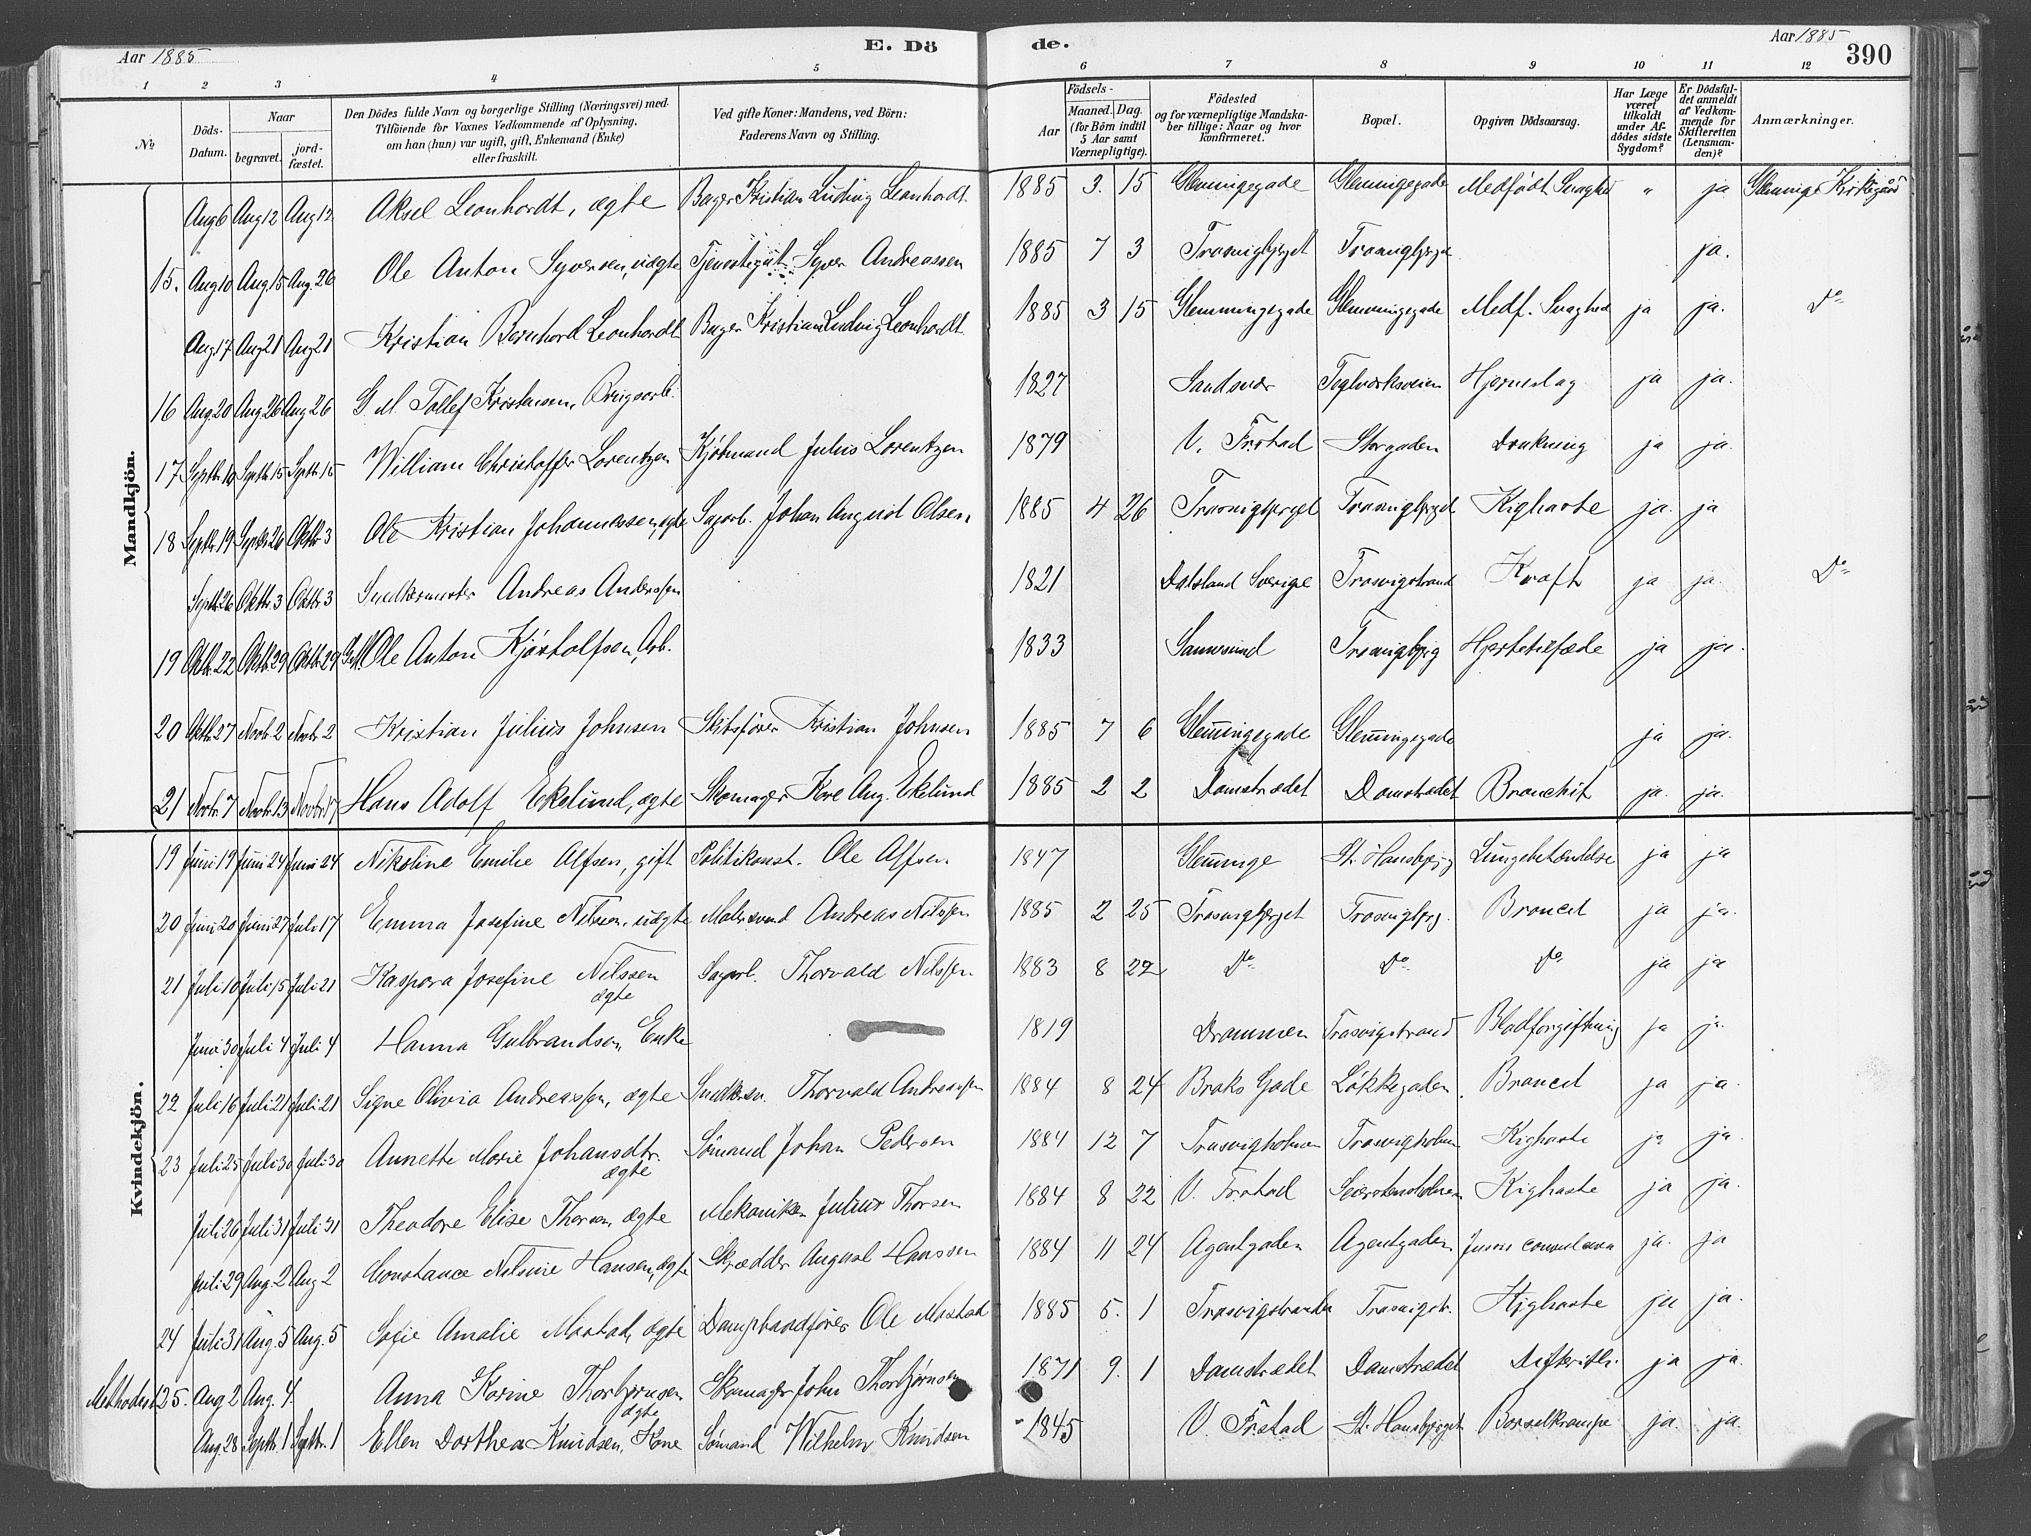 Aar 1885 E. Dö de. Aar 1885 390
1 2 3 4 5 6 7 8 9 10 11 12
№ Döds-Datum. Naar begravet. jord-fæstet. Den Dödes fulde Navn og borgerlige Stilling (Næringsvei) med Tilföiende for Voxnes Vedkommende af Oplysning, om han (hun) var ugift, gift, Enkemand (Enke) eller fraskilt. Ved gifte Koner: Mandens, ved Börn: Faderens Navn og Stilling. Aar Födsels- Maaned. Dag. (for Börn indtil 5 Aar samt Værnepligtige). Födested og for værnepligtige Mandskaber tillige: Naar og hvor konfirmeret. Bopæl. Opgiven Dödsaarsag. Har Læge været tilkaldt under Afdödes sidste Sygdom? Er Dödsfaldet anmeldt af Vedkommende for Skifteretten (Lensmanden)? Anmærkninger.
Mandkjön.
Aug 6 Aug 12 Aug 12 Aksel Leonhardt, ægte Bager Kristian Ludvig Leonhardt 1885 3. 15 Glemmingegade Glemmingegade Medfödt Svaghed " ja Glemminge Kirkegård
15. Aug 10 Aug. 15 Aug. 26 Ole Anton Syversen, uægte Tjenestegut Syver Andreassen 1885 7 3 Trosvigbjerget Trosvigbjerget ja.
Aug 17 Aug 21 Aug 21 Kristian Bernhard Leonhardt Bager Kristian Ludvig Leonhardt 1885 3 15 Glemmingegade Glemmingegade Medf. Svaghed ja ja. Do
16 Aug 20 Aug 26 Aug 26 G. M. Tollef Kristensen, Brugsarb. 1827 Sandsvær Teglverksveien Hjerneslag ja ja.
17 Septbr 10 Septbr 15 Septbr 15 William Christoffer Lorentzen Kjöbmand Julius Lorentzen 1879 V. Frstad Storgaden Drukning ja ja.
18 Septbr 19 Septbr 26 Oktbr 3 Ole Kristian Johannessen, ægte Sagarb. Johan August Olsen 1885 4 26 Trosvigbjerget Trosvigbjerget Kighoste ja. ja
Septbr 26 Oktbr 3 Oktbr 3 Snedkermester Andreas Anderssen 1821 Dalsland Sverige Trosvigstrand Kræft ja ja. Do
19 Oktbr. 22 Oktbr 29 Oktbr 29 G.M. Ole Anton Kjöstolfsen, Arb. 1833 Sannesund Trosvigbjerg Hjertetilfælde ja ja.
20 Oktbr 27 Novbr 2 Novbr 2 Kristian Julius Johnsen Skibsförer Kristian Johnsen 1885 7 6 Glem̅ingegade Glem̅ingegade ja ja.
21 Novbr. 7 Novbr 13 Novbr 17 Hans Adolf Ekelund, ægte Skomager Kore Aug. Ekelund 1885 2 2 Damstrædet Damstrædet Bronchit ja. ja.
Kvindekjön.
19 Juni 19 Juni 24 Juni 24 Nikoline Emilie Alfsen, gift Politikonst. Ole Alfsen 1847 Glem̅inge St. Hansbjerg Lungebetændelse ja ja
20 Juni 20 Juni 27 Juli 17 Emma Josefine Nilsen, uægte Malersvend Andreas Nilssen 1885 2 25 Trosvigbjerget Trosvigbjerg. Broncit ja ja.
21 Juli 10 Juli 15 Juli 21 Kaspara Josefine Nilssen ægte Sagarb. Thorvald Nilssen 1883 8 22 Do Do Do ja ja
Juni 30 Juli 4 Juli 4 Hanna Gulbrandsen, Enke 1819 Drammen Trosvigstrand Blodforgiftning ja ja.
22 Juli 16 Juli 21 Juli 21 Signe Olivia Andreassen, ægte Snedkersv. Thorvald Andreassen 1884 8 24 Broks Gade Lökkegaden Broncit ja ja.
23 Juli 25 Juli 30 Juli 30 Annette Marie Johansdtr. ægte Sömand Johan Pedersen 1884 12 7 Trosvigholmen Trosvigholmen Kighoste ja ja.
Juli 26 Juli 31 Juli 31 Theodore Elise Thorsen, ægte Mekaniker Julius Thorsen 1884 8 22 V. Frstad Kighoste ja ja.
Juli 29 Aug. 2 Aug 2 Constance Nilsine Hansen, ægte Skrædder August Hanssen 1884 11 24 Agentgaden Agentgaden ja. ja
24 Juli 31 Aug. 5 Aug. 5 Sofie Amalie Mostad, ægte Dampbaadförer Ole Mostad 1885 5. 1 Trosvigstranden Trosvigstr. Kighoste ja ja.
Methodist 25. Aug 2 Aug. 4. Anna Korine Thorbjørnsen ægte Skomager John Thorbjørnsen 1871 9. 1 Damstrædet Damstrædet Difterit. ja ja.
Aug. 28 Septbr. 1 Septbr 1 Ellen Dorthea Knudsen, Kone Sömand Wilhelm Knudsen 1845 V. Frstad St. Hansbjerget Barselkrampe ja. ja.